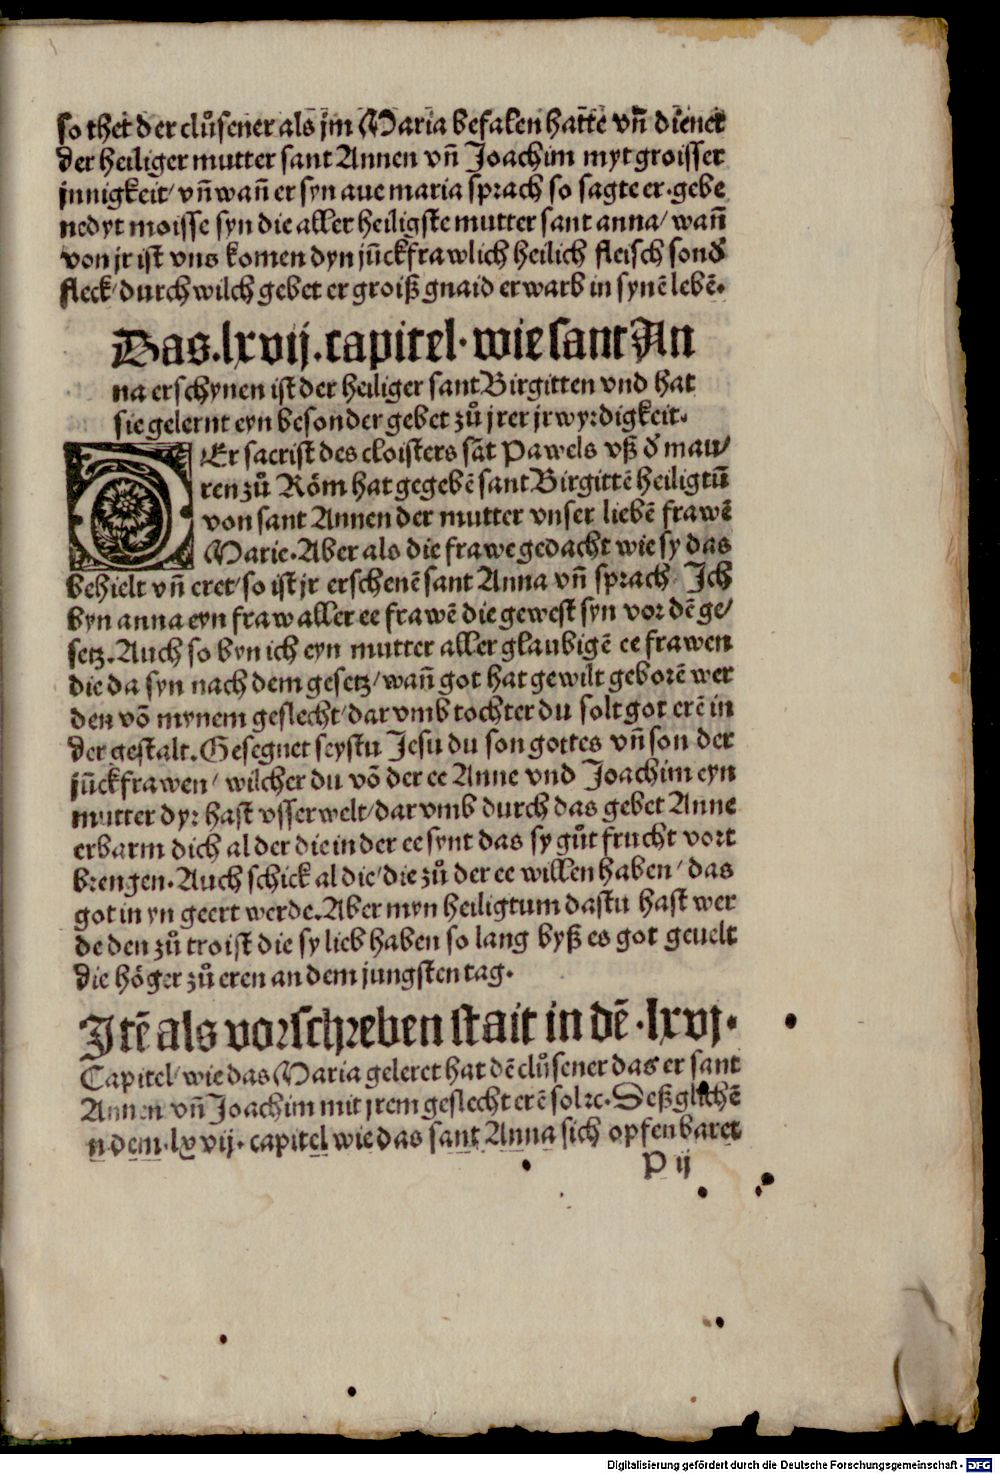 so thet der clůsener als jm Maria befalen hatte vñ dienet
der heiliger mutter sant Annen vñ Joachim myt groisser
jnnigkeit/ vñ wañ er syn aue maria sprach so sagte er·gebe
nedyt moisse syn die aller heiligste mutter sant anna/ wañ
von jr ist vns komen dyn jũckfrawlich heilich fleisch sond̕
fleck/ durch wilch gebet er groiß gnaid erwarb in synẽ lebẽ.
Das.lxvij.capitel· wie sant An
na erschynen ist der heiliger sant Birgitten vnd hat
sie gelernt eyn besonder gebet zů jrer jrwyrdigkeit.
DEr sacrist des cloisters sãt Pawels vß d̕ mau/
ren zů Röm hat gegebẽ sant Birgittẽ heiligtũ
von sant Annen der mutter vnser liebẽ frawẽ
Marie.Aber als die frawe gedacht wie sy das
behielt vñ eret/ so ist jr erschenẽ sant Anna vñ sprach/ Ich
byn anna eyn fraw aller ee frawẽ die gewest syn vor dẽ ge/
setz.Auch so byn ich eyn mutter aller glaubigẽ ee frawen
die da syn nach dem gesetz/ wañ got hat gewilt geborẽ wer
den võ mynem geslecht/ dar vmb tochter du solt got erẽ in
der gestalt.Gesegnet seystu Jesu du son gottes vñ son der
jũckfrawen/ wilcher du võ der ee Anne vnd Joachim eyn
mutter dyr hast vsserwelt/ dar vmb durch das gebet Anne
erbarm dich al der die in der ee synt das sy gůt frucht vort
brengen.Auch schick al die/ die zů der ee willen haben/ das
got in yn geert werde.Aber myn heiligtum dastu hast wer
de den zů troist die sy lieb haben so lang byß es got geuelt
die höger zů eren an dem jungsten tag.
Itẽ als vorschreben stait in dẽ .lxvj.
Capitel/ wie das Maria geleret hat dẽ clůsener das er sant
Annen vñ Joachim mit jrem geslecht erẽ sol ꝛc.Deßglichẽ
n dem.lxvij.capitel wie das sant Anna sich opfenbaret
P ij
Digitalisierung gefördert durch die Deutsche Forschungsgemeinschaft - DFG